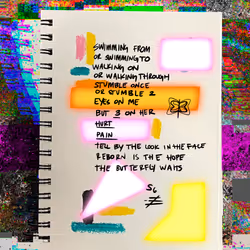 SWIMMING FROM
OR SWIMMING TO
WALKING ON
OR WALKING THROUGH
STUMBLE ONCE
OR STUMBLE 2
EYES ON ME
BUT 3 ON HER
HURT
PAIN
TELL BY THE LOOK IN THE FACE
REBORN IS THE HOPE
THE BUTTERFLY WAITS
S6
≠